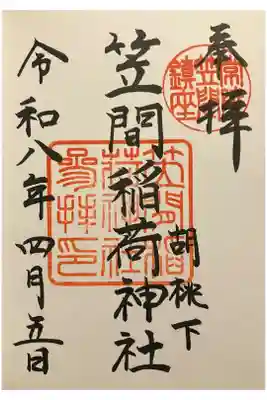 奉拝
常陸国笠間鎮座
胡桃下
笠間稲荷神社
笠間稲荷神社参拝之印
令和八年四月五日